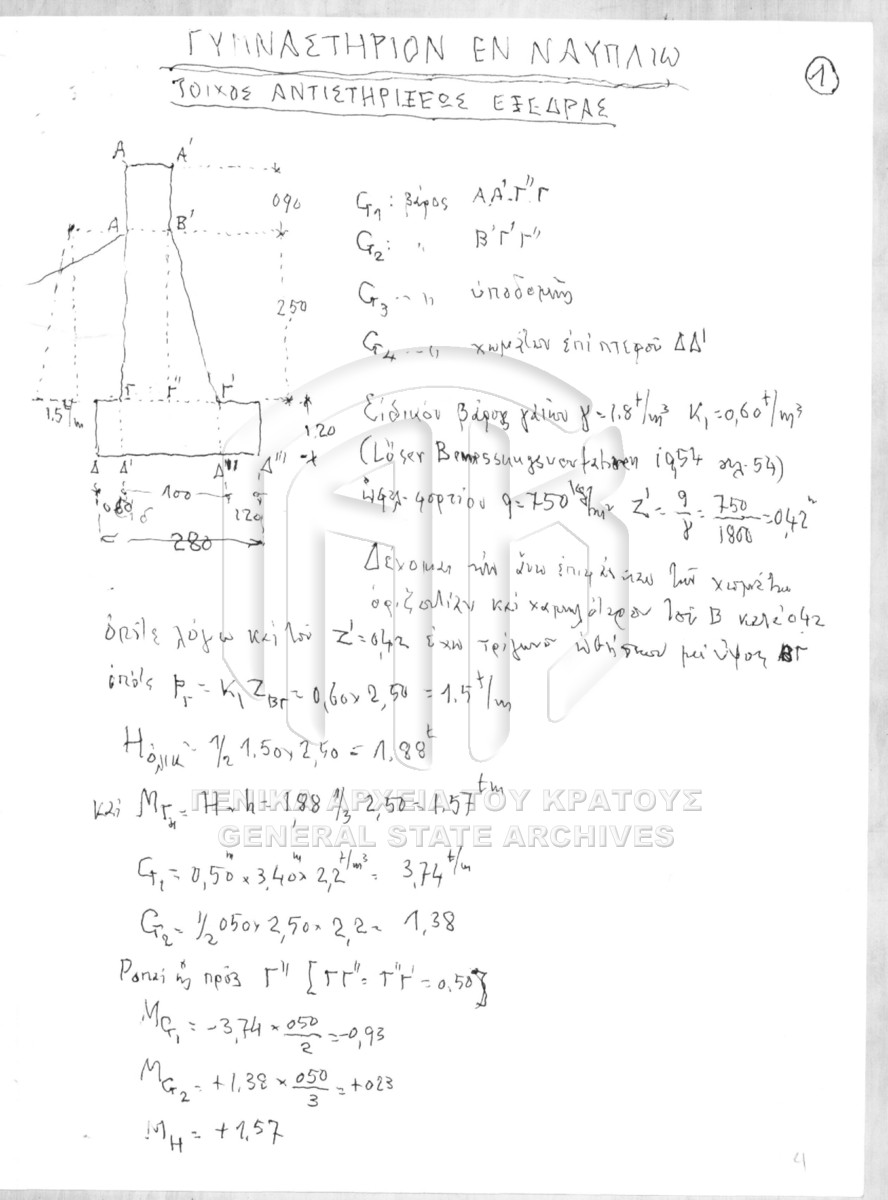 ΓΥΜΝΑΣΤΗΡΙΟΝ ΕΝ ΝΑΥΠΛΙΩ
1
ΤΟΙΧΟΣ ΑΝΤΙΣΤΗΡΙΞΕΩΣ ΕΞΕΔΡΑΣ
A A'
090
A B'
250
Γ Γ'' Γ'
1.5 t/m
120
Δ Δ' Δ'''' Δ'''
100
120
280
G₁: βάρος ΑΑ'Γ''Γ
G₂: " Β'Γ'Γ''
G₃ .. " ὑποδομῆς
G₄ .. " χωμάτων ἐπί πτεροῦ ΔΔ'
Εἰδικόν βάρος γαιῶν γ=1.8 t/m³ K₁=0,60 t/m³
(Löser Bemessungsverfahren 1954 σελ. 54)
ὠφελ. φορτίου q=750 kg/m² Z'= q/γ = 750/1800 = 0,42 m
Δέχομαι τήν ἄνω ἐπιφάνειαν τῶν χωμάτων
ὁριζοντίαν καί χαμηλότερον τοῦ Β κατά 042
ὁπότε λόγω καί τοῦ Z'=0,42 ἔχω τρίγωνο ὠθήσεων μέ ὕψος ΒΓ
ὁπότε P_Γ = K₁ Z_ΒΓ = 0,60 x 2,50 = 1.5 t/m
H ὁλικ = 1/2 1.50 x 2,50 = 1,88 t
καί M_Γ'' = H - h = 1,88 1/3 2,50 = 1.57 tm
ΓΕΝΙΚΑ ΑΡΧΕΙΑ ΤΟΥ ΚΡΑΤΟΥΣ
GENERAL STATE ARCHIVES
G₁ = 0,50 m x 3,40 m x 2,2 t/m³ = 3,74 t/m
G₂ = 1/2 050 x 2,50 x 2,2 = 1,38
Ροπαί ὡς πρός Γ'' [ΓΓ'' = Γ''Γ' = 0.50]
M_G₁ = -3,74 x 050/2 = -0,93
M_G₂ = +1,38 x 050/3 = +023
M_H = +1,57
4